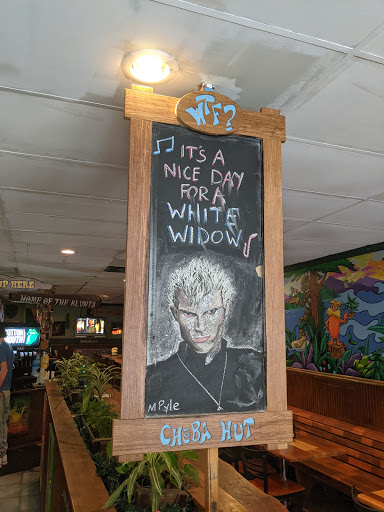 WTF?
IT'S A
NICE DAY
FOR A
WHITE
WIDOW
M Pyle
CHEBA HUT
UP HERE
HOME OF THE BLUNTS